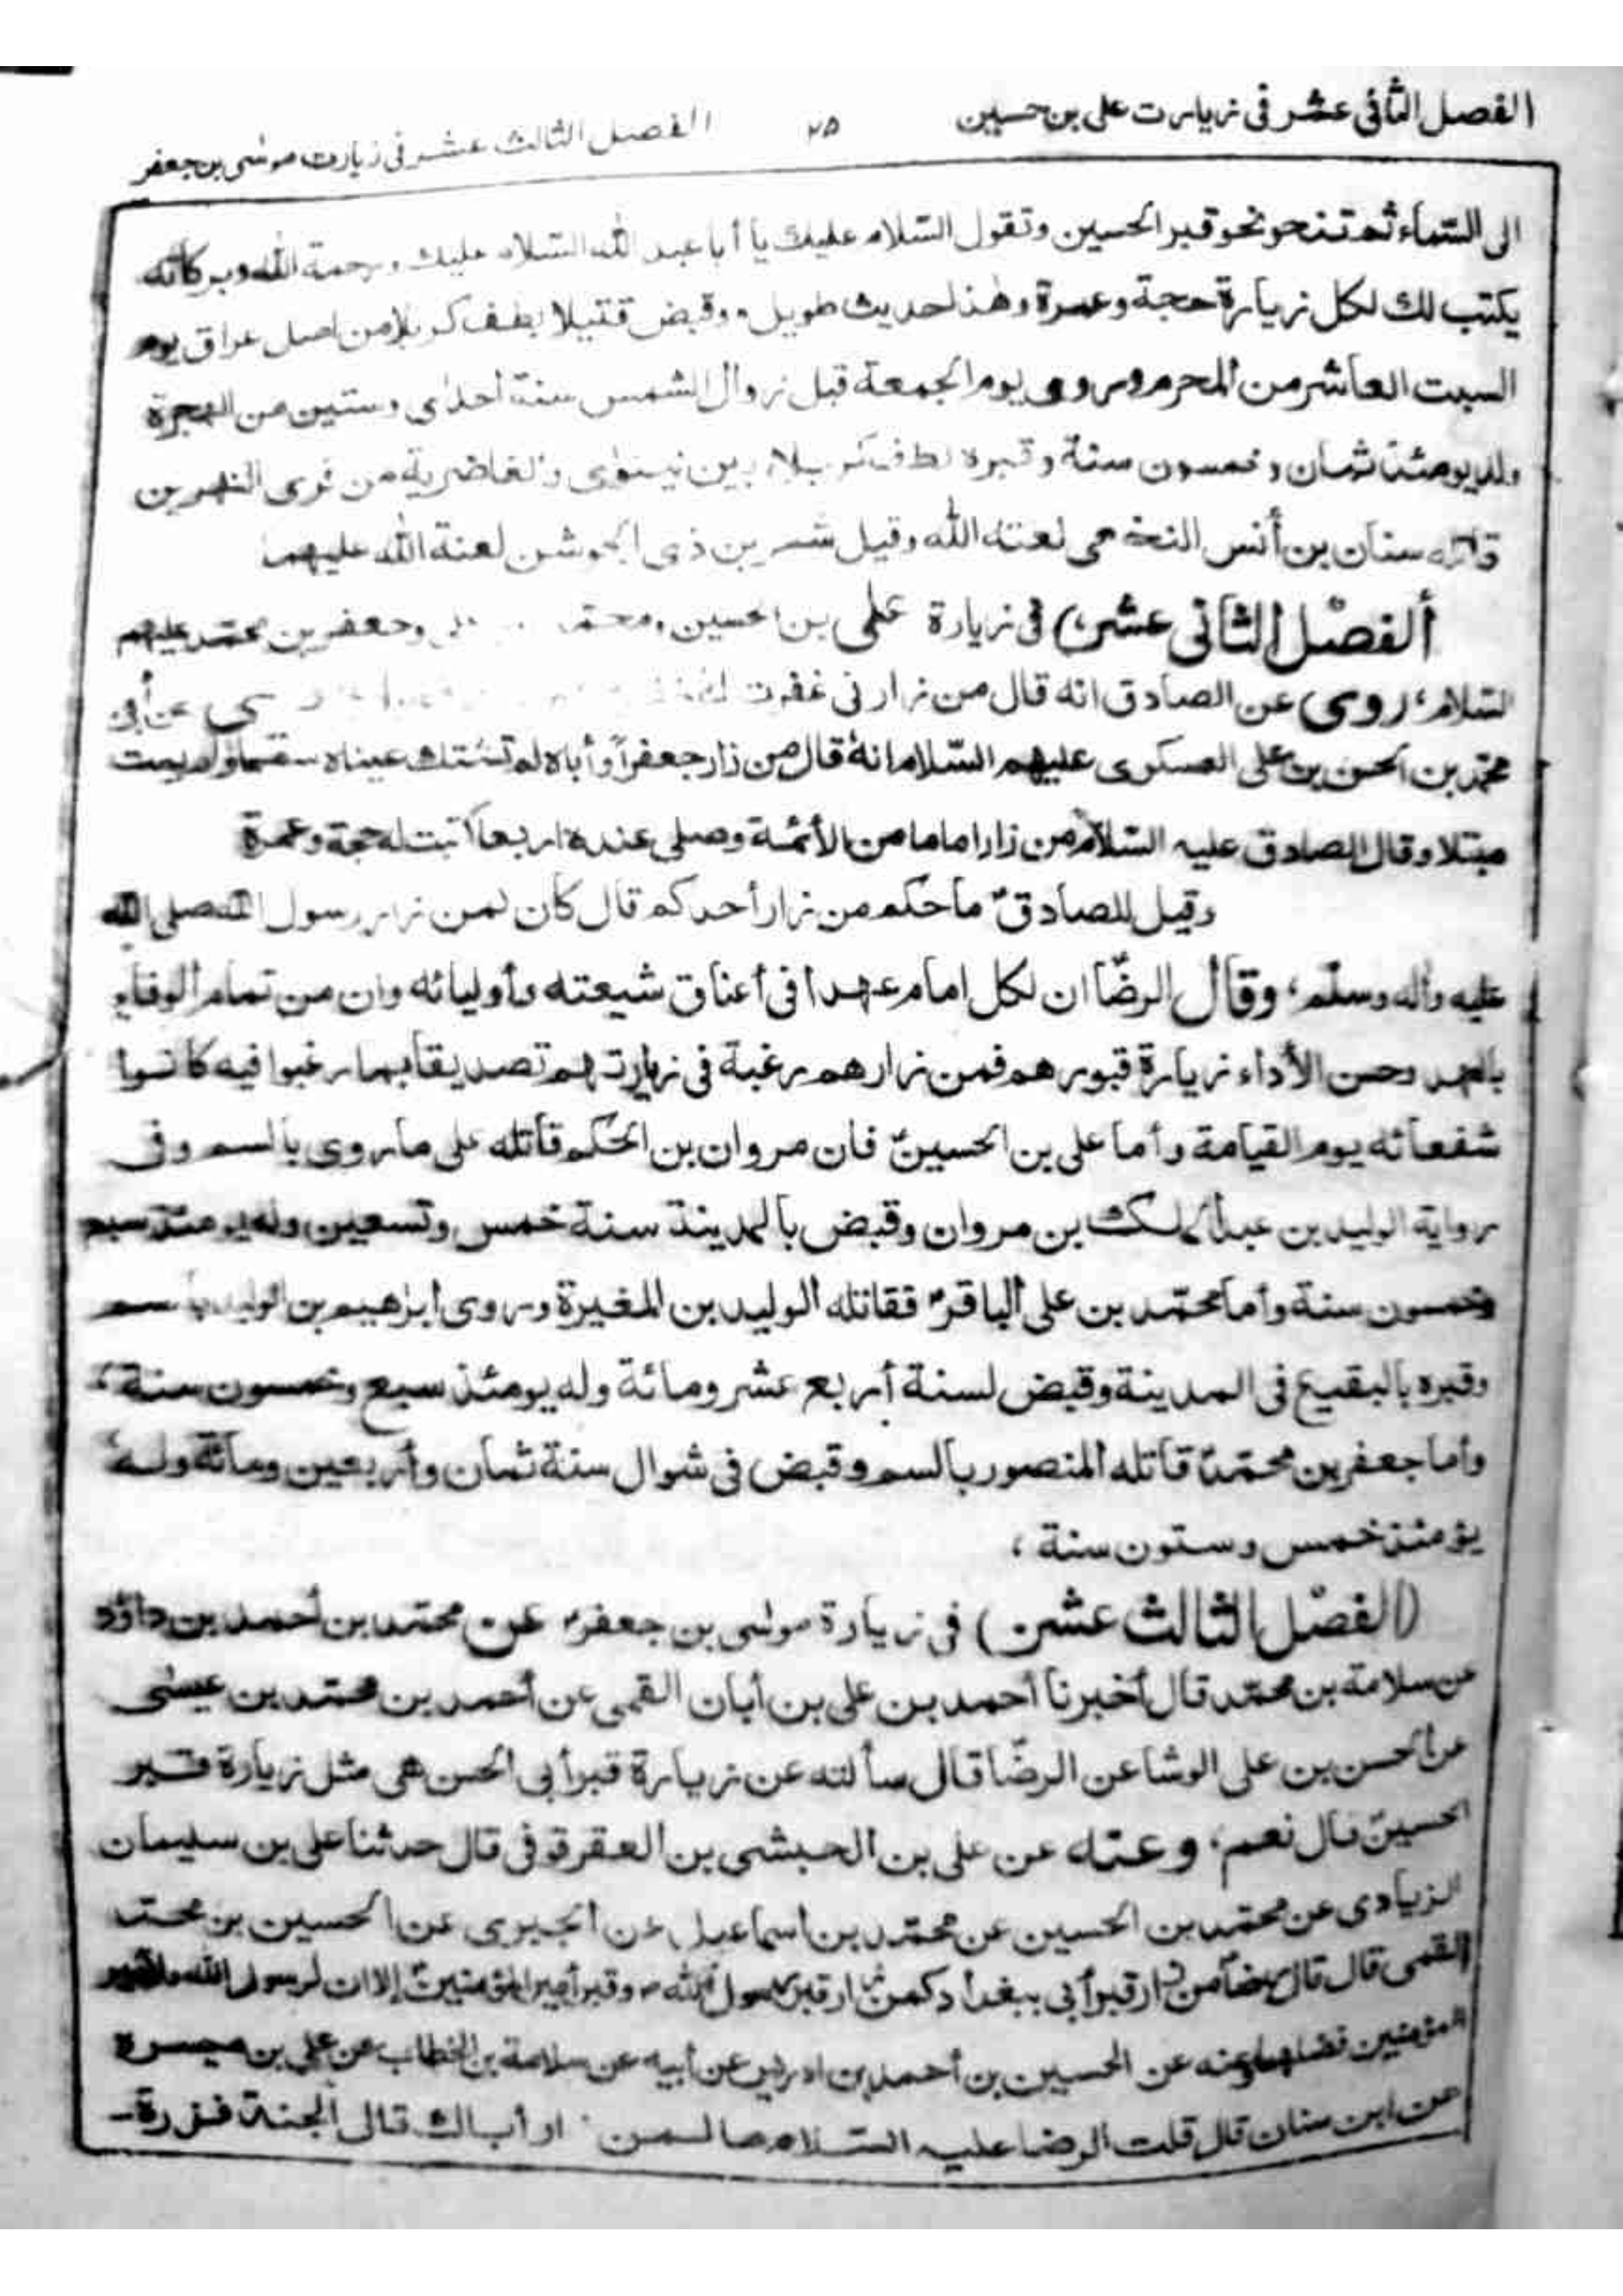 الفصل الثانی عشر فی زیارت علی بن حسین
۲۵
الفصل الثالث عشر فی زیارت موسٰی بن جعفر
الی السّماء ثم تنحو نحو قبر الحسین وتقول السّلام علیك یا أبا عبد الله السّلام علیك ورحمة الله وبركاته
یكتب لك لكل زیارة حجة وعمرة وهٰذا حدیث طویل، وقبض قتیلا بطف كربلا من اصل عراق یوم
السبت العاشر من المحرم وروی یوم الجمعة قبل زوال الشمس سنة أحدٰی وستین من الهجرة
وله یومئذ ثمان وخمسون سنة وقبره لطف كربلا بین نینوٰی والغاضریة من قری النهرین
قاتله سنان بن أنس النخعی لعنة الله وقیل شمر بن ذی الجوشن لعنة الله علیهما
(ألفصل الثانی عشر) فی زیارة علی بن الحسین ومحمد وجعفر بن محمّد علیهم
السّلام، روی عن الصادق انه قال من زارنی غفرت عن أبی
محمّد بن الحسن بن علی العسكری علیهم السّلام انهٗ قال من زار جعفراً وأباه لم تشتك عیناه سقما ولم یمت
مبتلا وقال الصادق علیه السّلام من زار اماما من الأئمّة وصلی عنده اربعا كتبت له حجة وعمرة
وقیل للصادقؑ ما حكم من زار أحدكم قال كان لمن زار رسول الله صلی الله
علیه وأله وسلّم، وقال الرضاؑ ان لكل امام عهدا فی أعناق شیعته وأولیائه وان من تمام الوفاء
بالعهد وحسن الأداء زیارة قبورهم فمن زارهم رغبة فی زیارتهم تصدیقا بما رغبوا فیه كانوا
شفعائه یوم القیامة وأما علی بن الحسینؑ فان مروان بن الحكم قاتله علی ما روی بالسم وفی
روایة الولید بن عبد الملك بن مروان وقبض بالمدینة سنة خمس وتسعین وله یومئذ سبع
وخمسون سنة وأما محمّد بن علی الباقرؑ فقاتله الولید بن المغیرة وروی ابرٰهیم بن الولید بالسم
وقبره بالبقیع فی المدینة وقبض لسنة أربع عشر ومائة وله یومئذ سبع وخمسون سنة،
وأما جعفر بن محمّدؑ قاتله المنصور بالسم وقبض فی شوال سنة ثمان وأربعین ومائة وله
یومئذ خمس وستون سنة،
(الفصل الثالث عشر) فی زیارة موسٰی بن جعفرؑ عن محمّد بن أحمد بن داؤد
عن سلامة بن محمّد قال أخبرنا أحمد بن علی بن أبان القمی عن أحمد بن محمّد بن عیسٰی
عن الحسن بن علی الوشا عن الرضاؑ قال سألته عن زیارة قبر أبی الحسن هی مثل زیارة قبر
الحسینؑ قال نعم، وعنه عن علی بن الحبشی بن العقرقوفی قال حدثنا علی بن سلیمان
الزیادی عن محمّد بن الحسین عن محمّد بن اسماعیل عن الجبیری عن الحسین بن محمّد
القمی قال قال رضاؑ من زار قبر أبی ببغداد كمن زار قبر رسول الله ص وقبر أمیر المؤمنینؑ إلا ان لرسول الله ولأمیر
المؤمنین فضلهما وعنه عن الحسین بن أحمد بن ادریس عن أبیه عن سلامة بن الخطاب عن علی بن میسرة
عن ابن سنان قال قلت الرضا علیه السّلام ما لمن أباك قال الجنة فزره